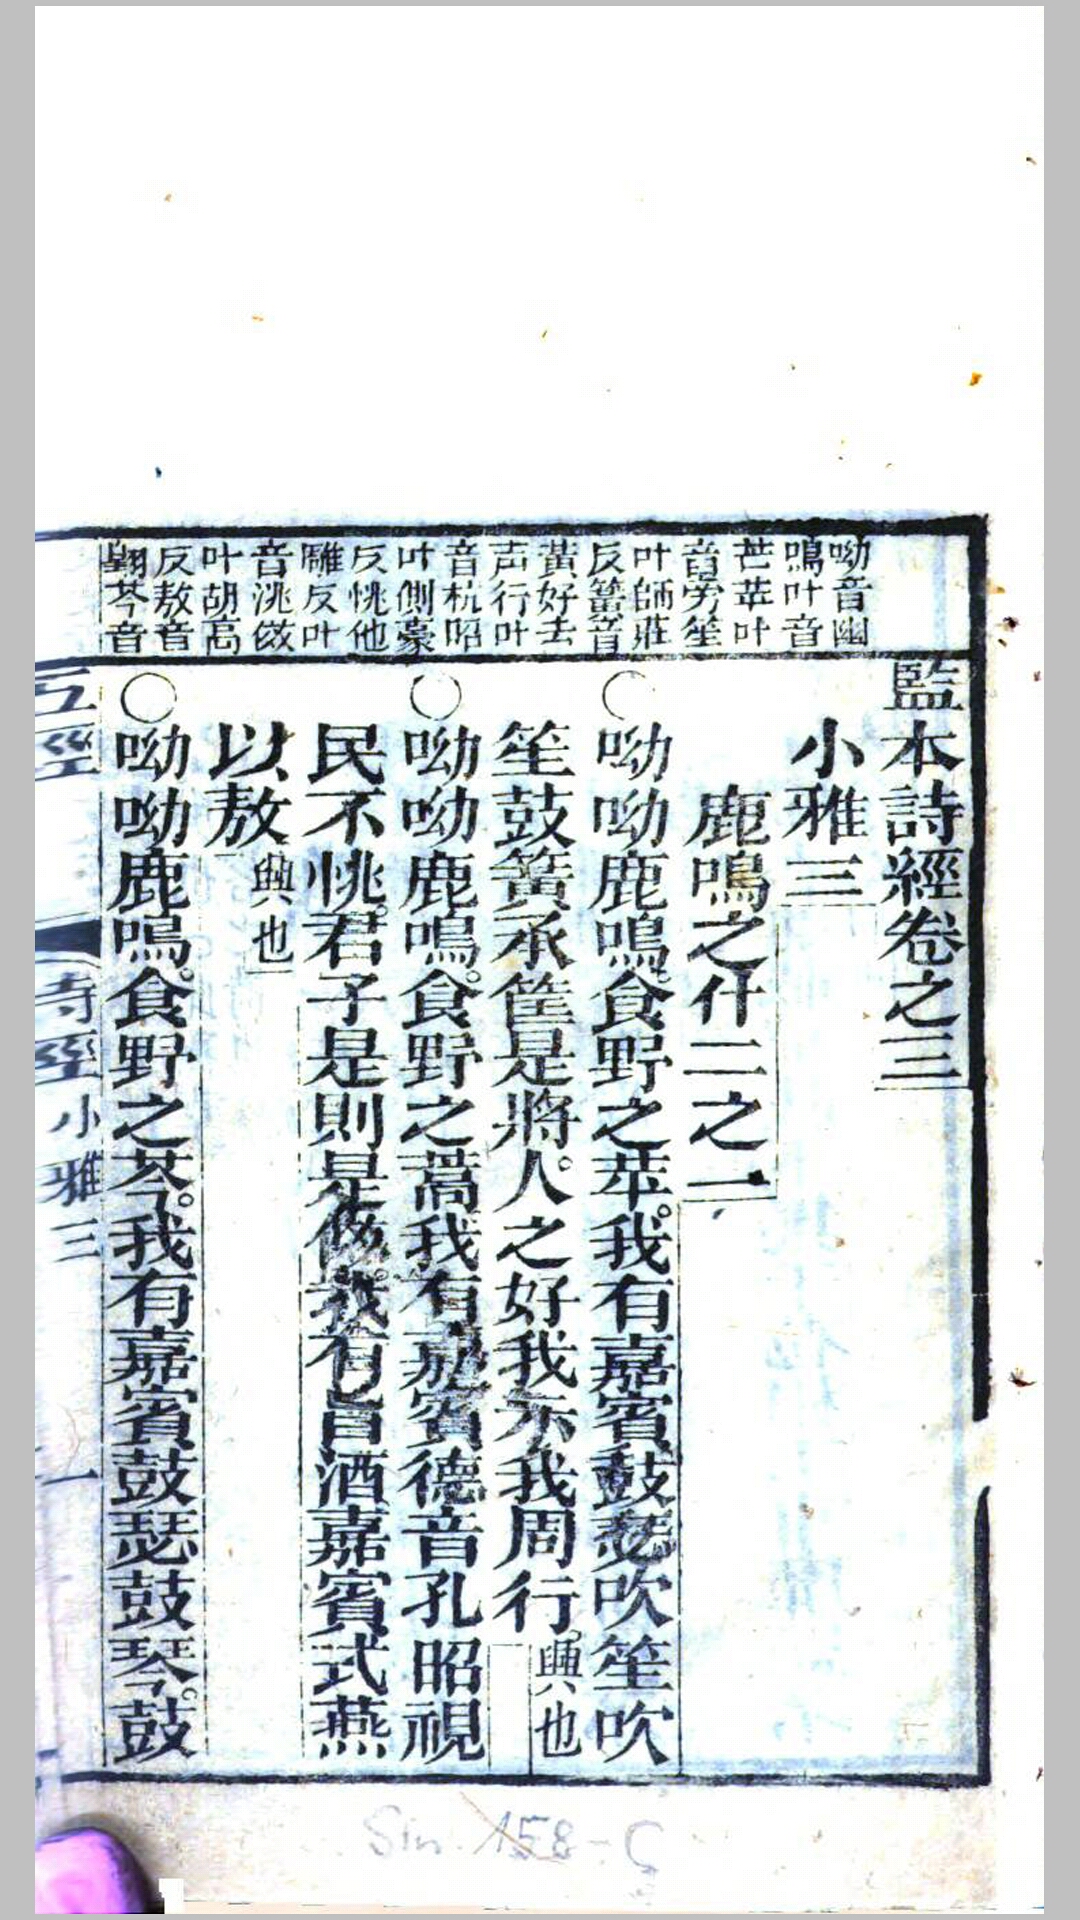 呦音幽
鳴叶音
芒苹叶
音旁笙
叶師莊
反簧音
黃好去
声行叶
音杭昭
叶側豪
反恌他
雕反叶
音洮傚
叶胡高
反敖音
翱芩音
監本詩經卷之三
小雅三
鹿鳴之什二之一
○呦呦鹿鳴。食野之苹。我有嘉賓鼓瑟吹笙吹
笙鼓簧承筐是將。人之好我示我周行。興也
○呦呦鹿鳴。食野之蒿我有嘉賓德音孔昭視
民不恌。君子是則是傚。我有旨酒嘉賓式燕
以敖興也
○呦呦鹿鳴。食野之芩。我有嘉賓鼓瑟鼓琴。鼓
五經
詩經
小雅三
一
Sin. 158-C